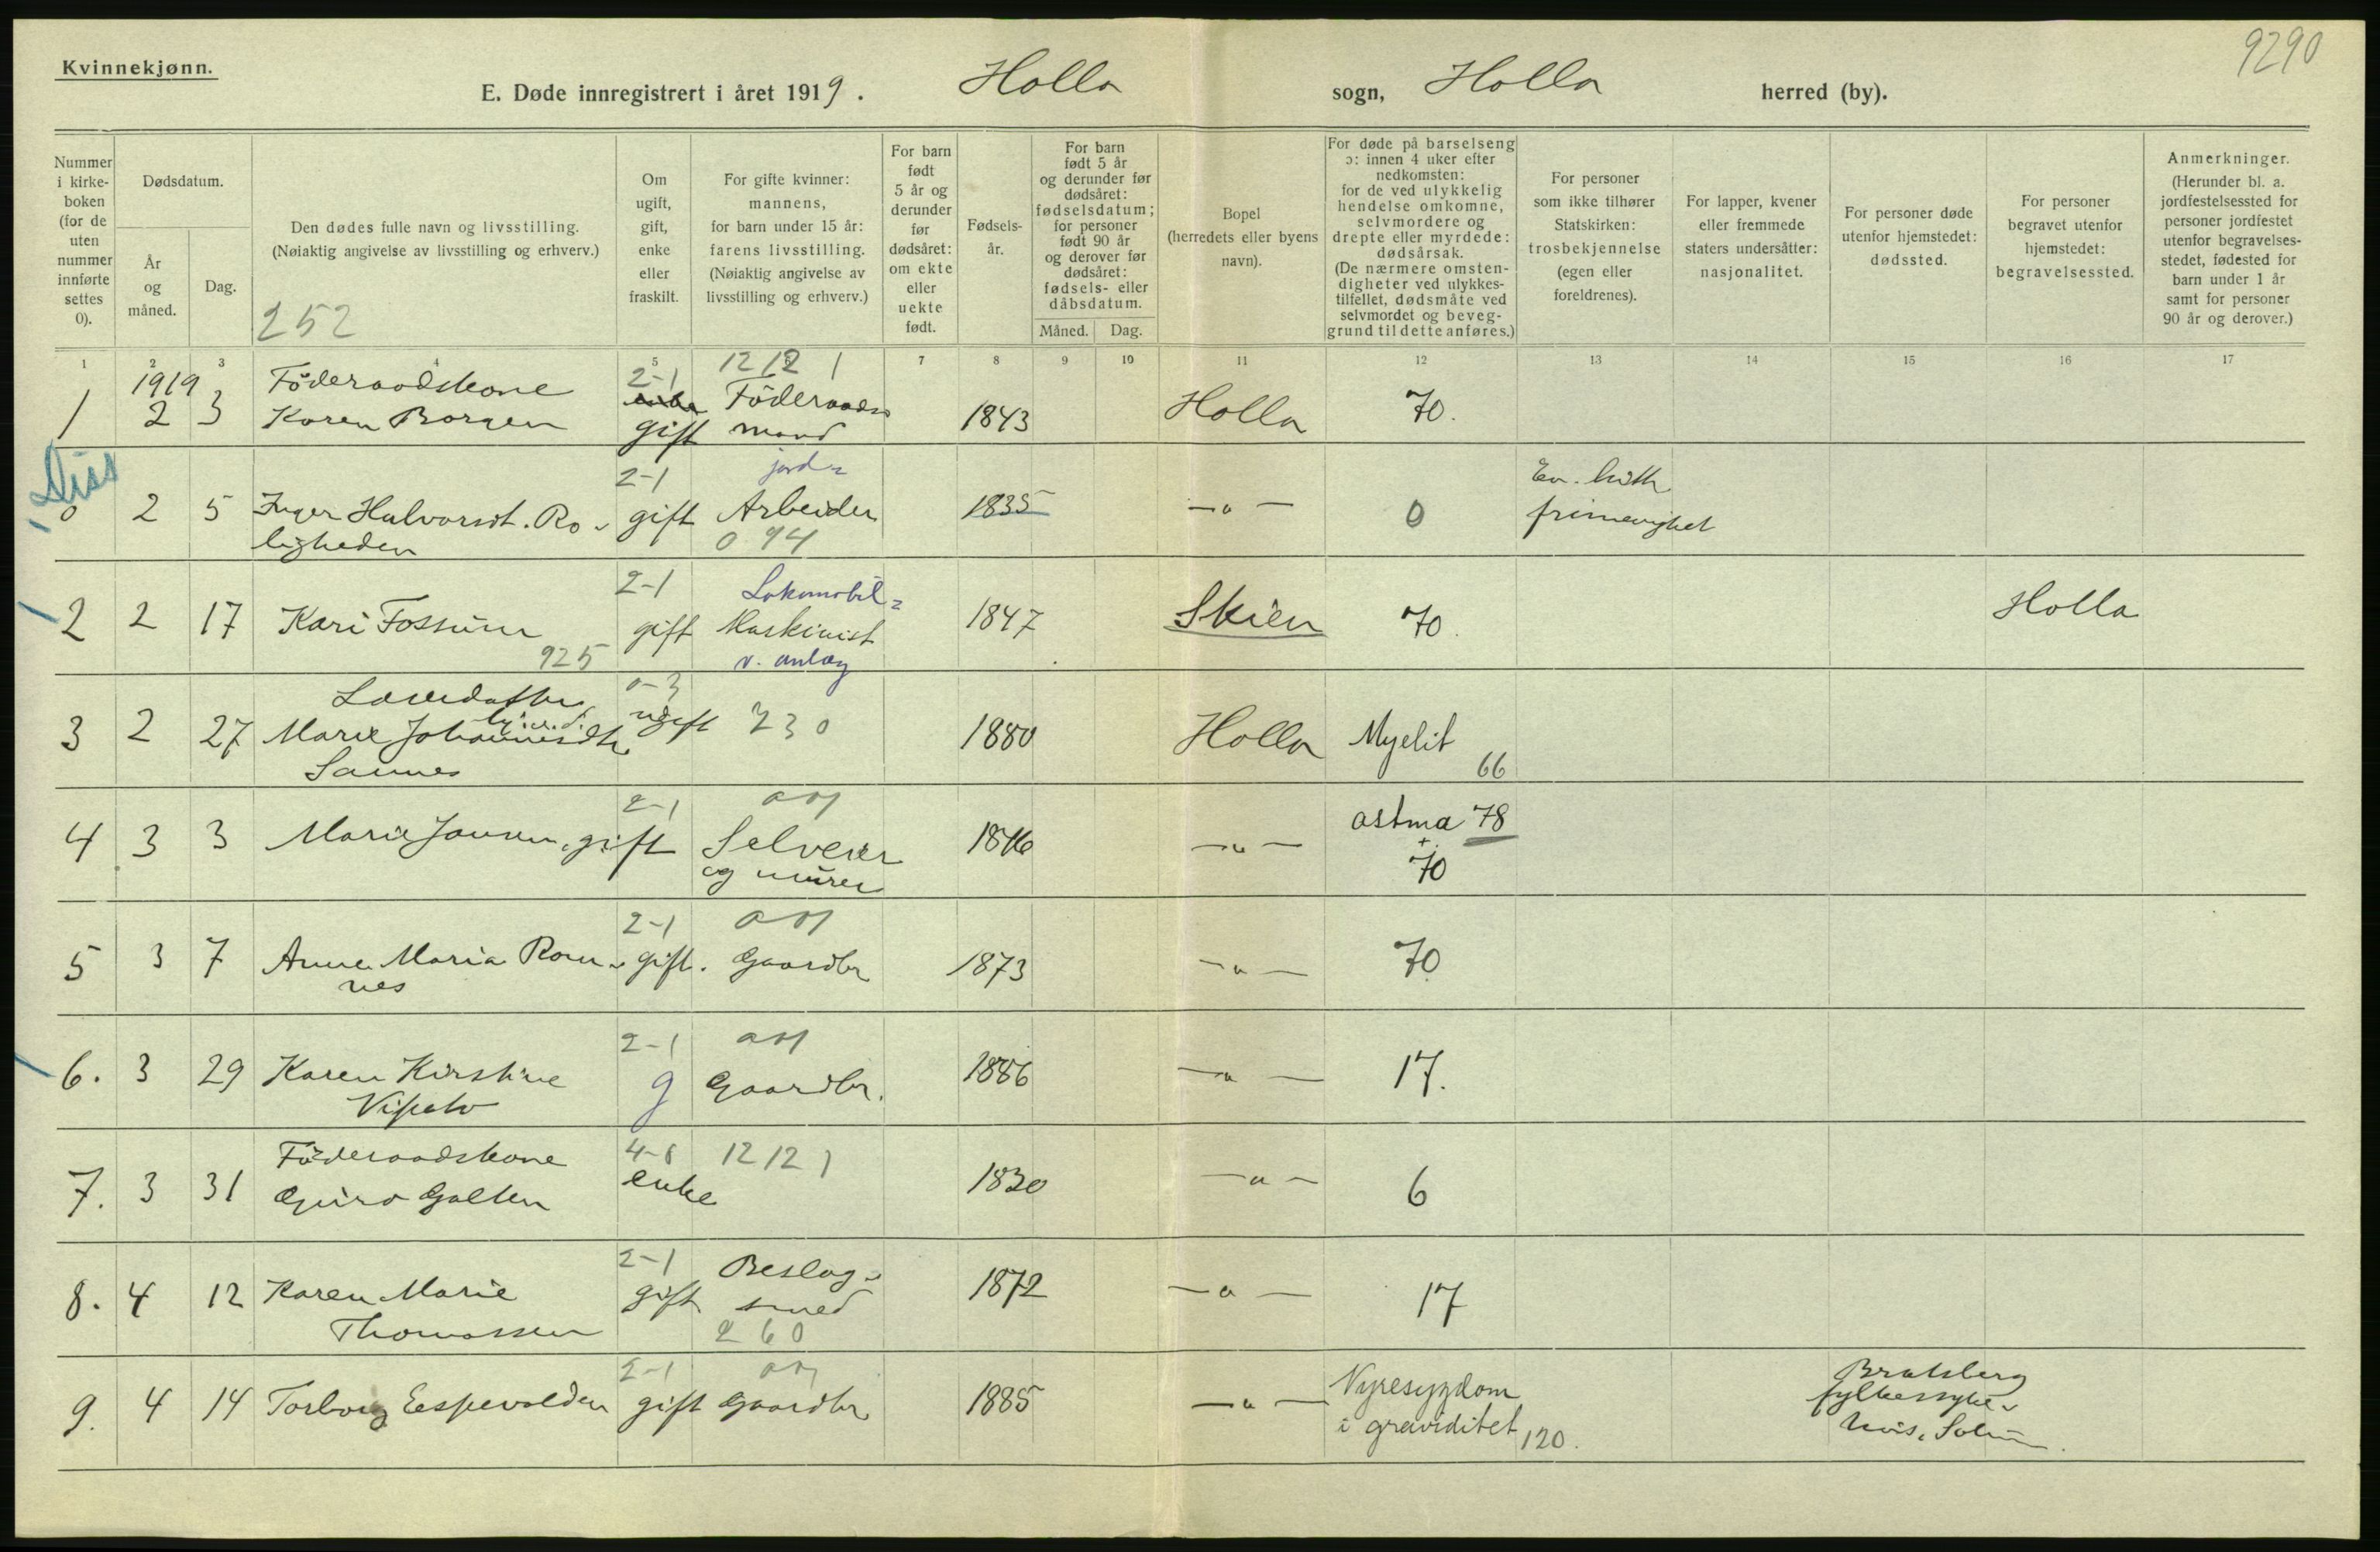 9290
Kvinnekjønn.
E. Døde innregistrert i året 1919. Holla sogn, Holla herred (by).
Nummer i kirke-boken (for de uten nummer innførte settes 0).
Dødsdatum.
År og måned.
Dag.
Den dødes fulle navn og livsstilling.
(Nøiaktig angivelse av livsstilling og erhverv.)
252
Om ugift, gift, enke eller fraskilt.
For gifte kvinner: mannens, for barn under 15 år: farens livsstilling. (Nøiaktig angivelse av livsstilling og erhverv.)
For barn født 5 år og derunder før dødsåret: om ekte eller uekte født.
Fødsels-år.
For barn født 5 år og derunder før dødsåret: fødselsdatum; for personer født 90 år og derover før dødsåret: fødsels- eller dåbsdatum.
Måned. Dag.
Bopel (herredets eller byens navn).
For døde på barselseng ɔ: innen 4 uker efter nedkomsten: for de ved ulykkelig hendelse omkomne, selvmordere og drepte eller myrdede: dødsårsak. (De nærmere omsten-digheter ved ulykkes-tilfellet, dødsmåte ved selvmordet og beveg-grund til dette anføres.)
For personer som ikke tilhører Statskirken: trosbekjennelse (egen eller foreldrenes).
For lapper, kvener eller fremmede staters undersåtter: nasjonalitet.
For personer døde utenfor hjemstedet: dødssted.
For personer begravet utenfor hjemstedet: begravelsessted.
Anmerkninger. (Herunder bl. a. jordfestelsessted for personer jordfestet utenfor begravelses-stedet, fødested for barn under 1 år samt for personer 90 år og derover.)
1 2 3 4 5 6 7 8 9 10 11 12 13 14 15 16 17
1919 Føderaadskone 2-1 1212 1
1 2 3 Karen Borgen enke gift Føderaads mand 1843 Holla 70.
Diss
0 2 5 Inger Halvorsdt. Ro- 2-1 gift jord= Arbeider 1835 -"- 0 Ev. luth. frimenighet
ligheden 0 94
2 2 17 Kari Fossum 2-1 gift Lokomobil= Maskinist 1847 Skien 70. Holla
925 v. anlæg
3 2 27 Marie Johannesdtr. 0-3 ugift 230 1880 Holla Myelit 66
4 3 3 Marie Jansen, gift 2-1 Selveier 1846 -"- astma 78
og murer + 70
5 3 7 Anne Maria Rom- 2-1 gift. Gaardbr 1873 -"- 70
nes
6. 3 29 Karen Kirstine 2-1 g Gaardbr. 1886 -"- 17.
7. 3 31 Føderaadskone 4-0 1212 1
Guro Galten enke 1830 -"- 6
8. 4 12 Karen Marie 2-1 gift Beslag- 1872 -"- 17
Thomassen smed
260
9. 4 14 Torborg Espevolden 2-1 gift Gaardbr. 1885 -"- Nyresygdom
i graviditet 120.
Bratsberg
fylkessyke-
hus, Solum.